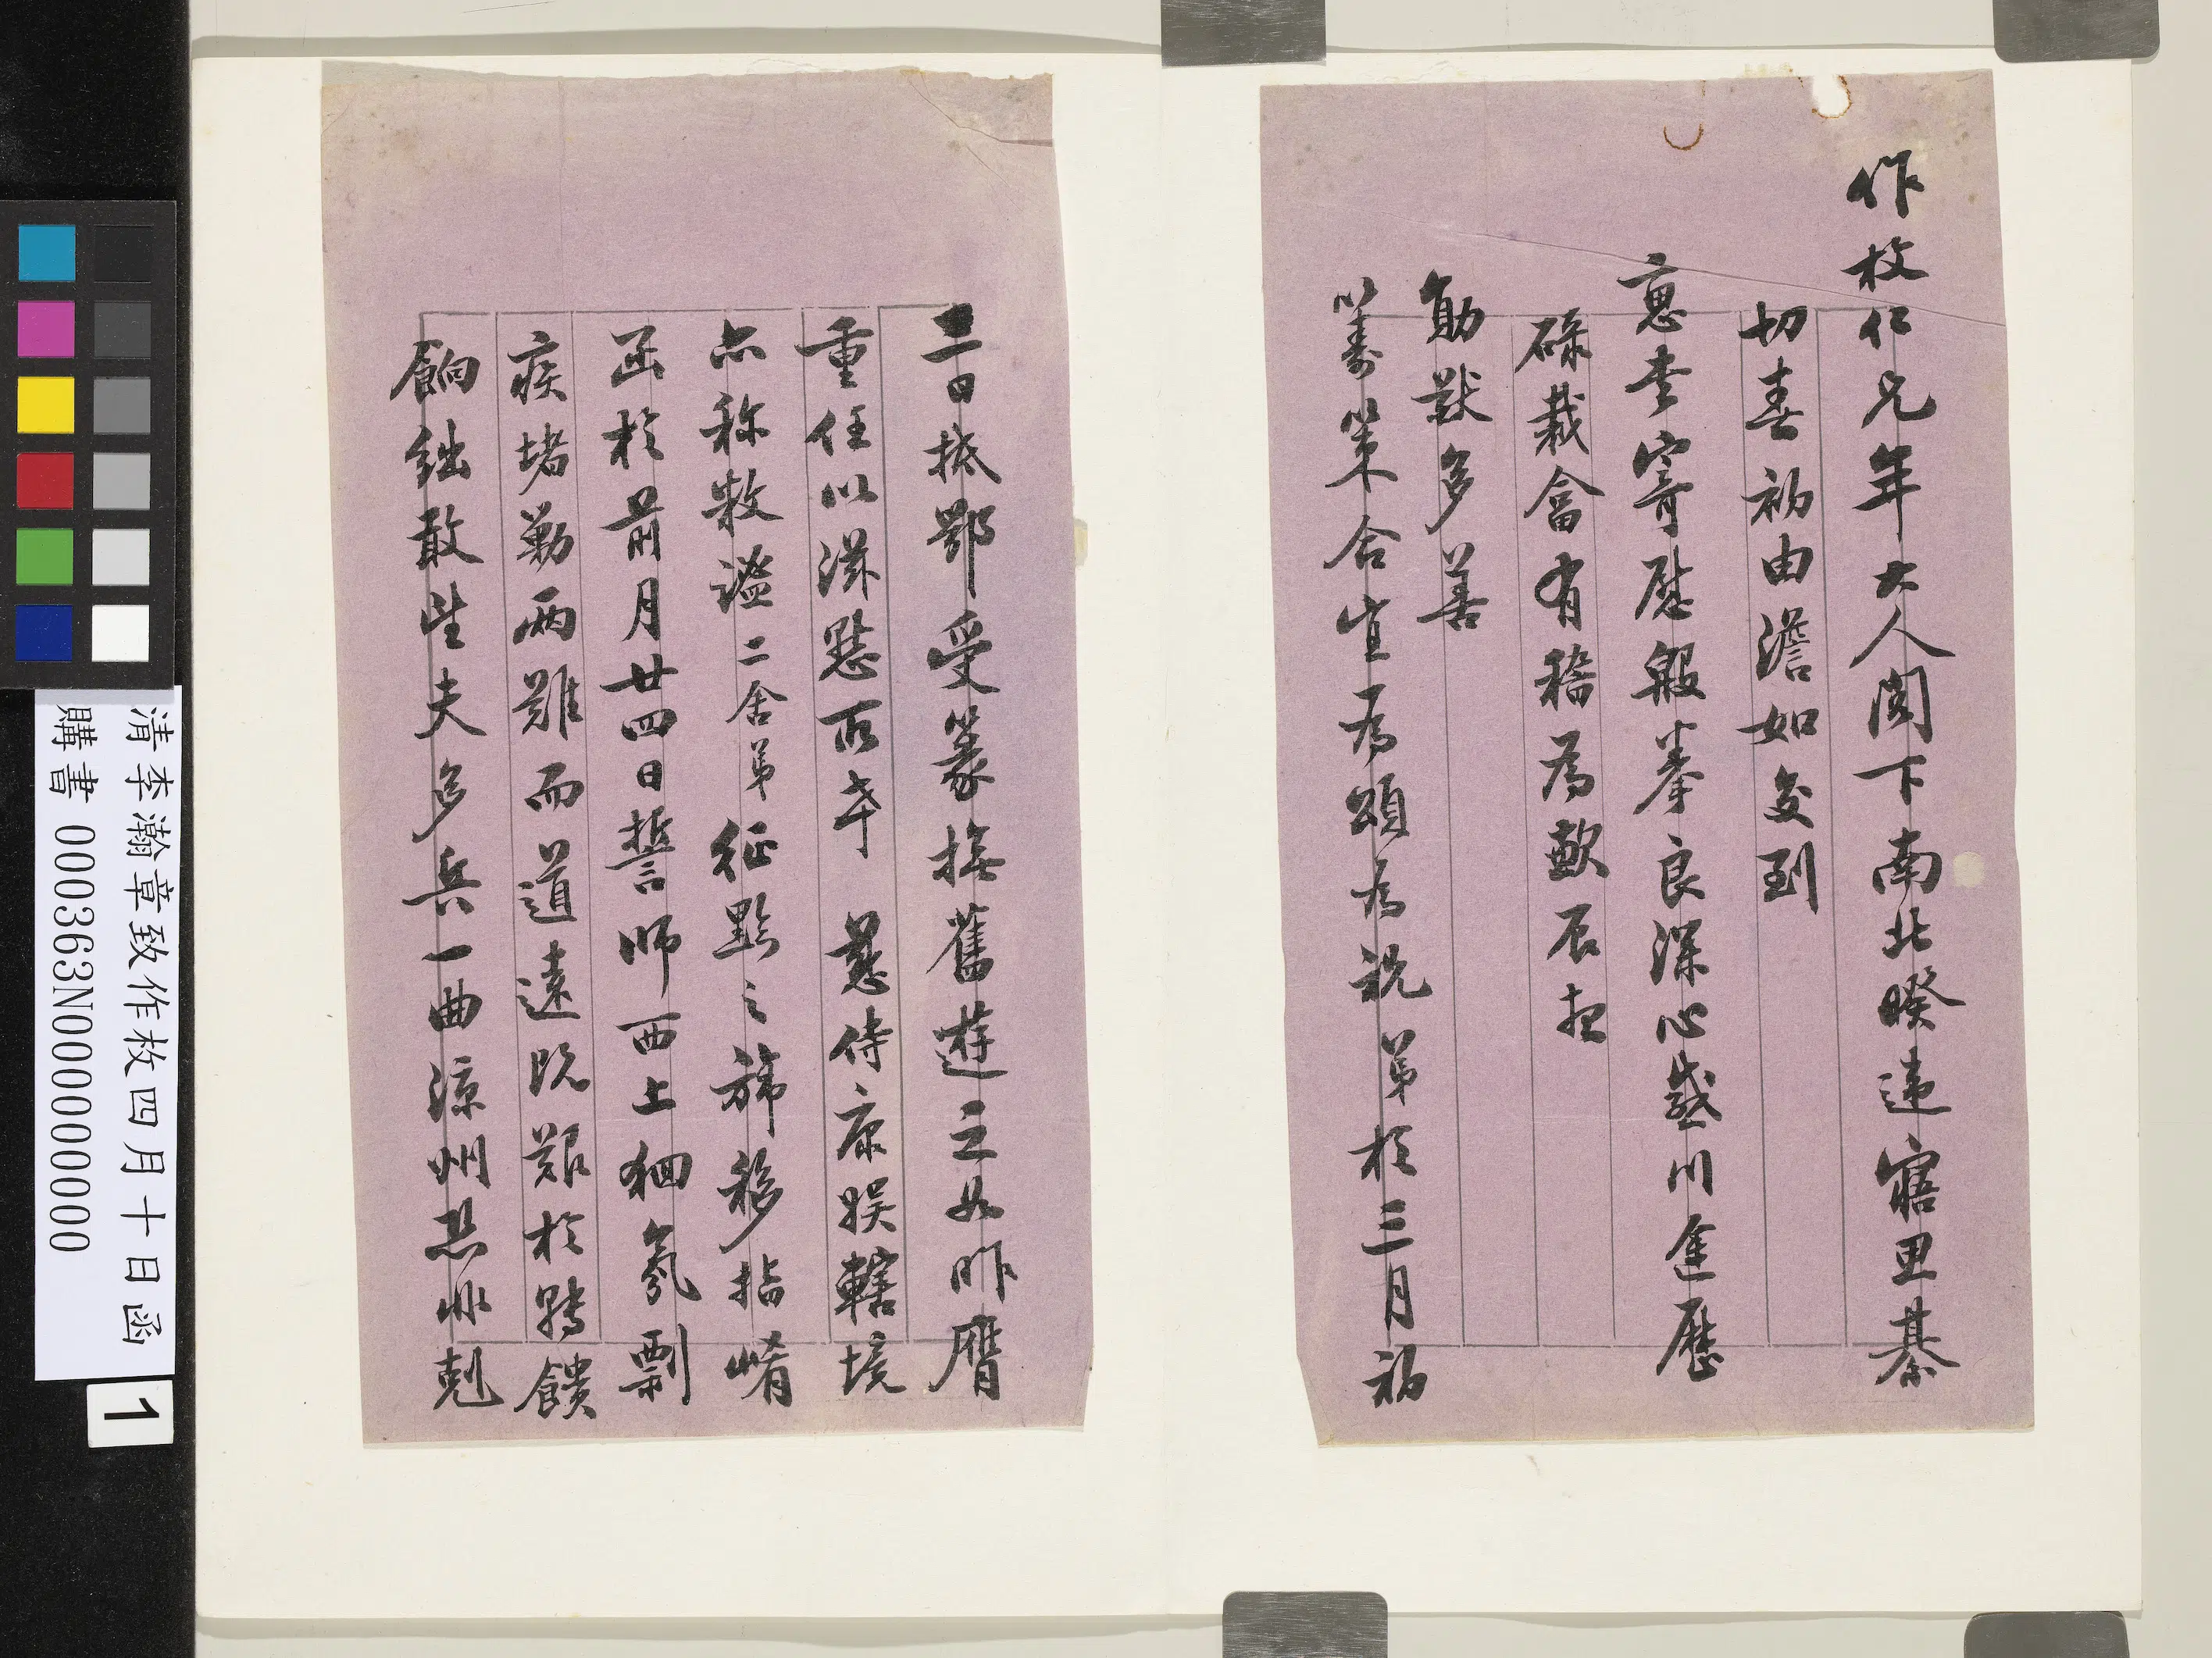 作枚仁兄年大人閣下南北暌違寤思綦
切春初由澹如交到
惠書寄慰殷拳良深心感川途歷
碌裁畣有稽為歉辰想
勛猷多善
籌策合宜為頌為祝弟於三月初
二日抵鄂受篆撫舊遊之如昨膺
重任以滋慙所幸 慈侍康娛轄境
亦称敉謐二舍弟征黔之旆移指崤
函於前月廿四日誓师西上捆氛剽
疾堵勦兩難而道遠既艱於轉饋
餉絀敢望夫多兵一曲涼州恐非剋
清李瀚章致作枚四月十日函
購書 000363N000000000
1